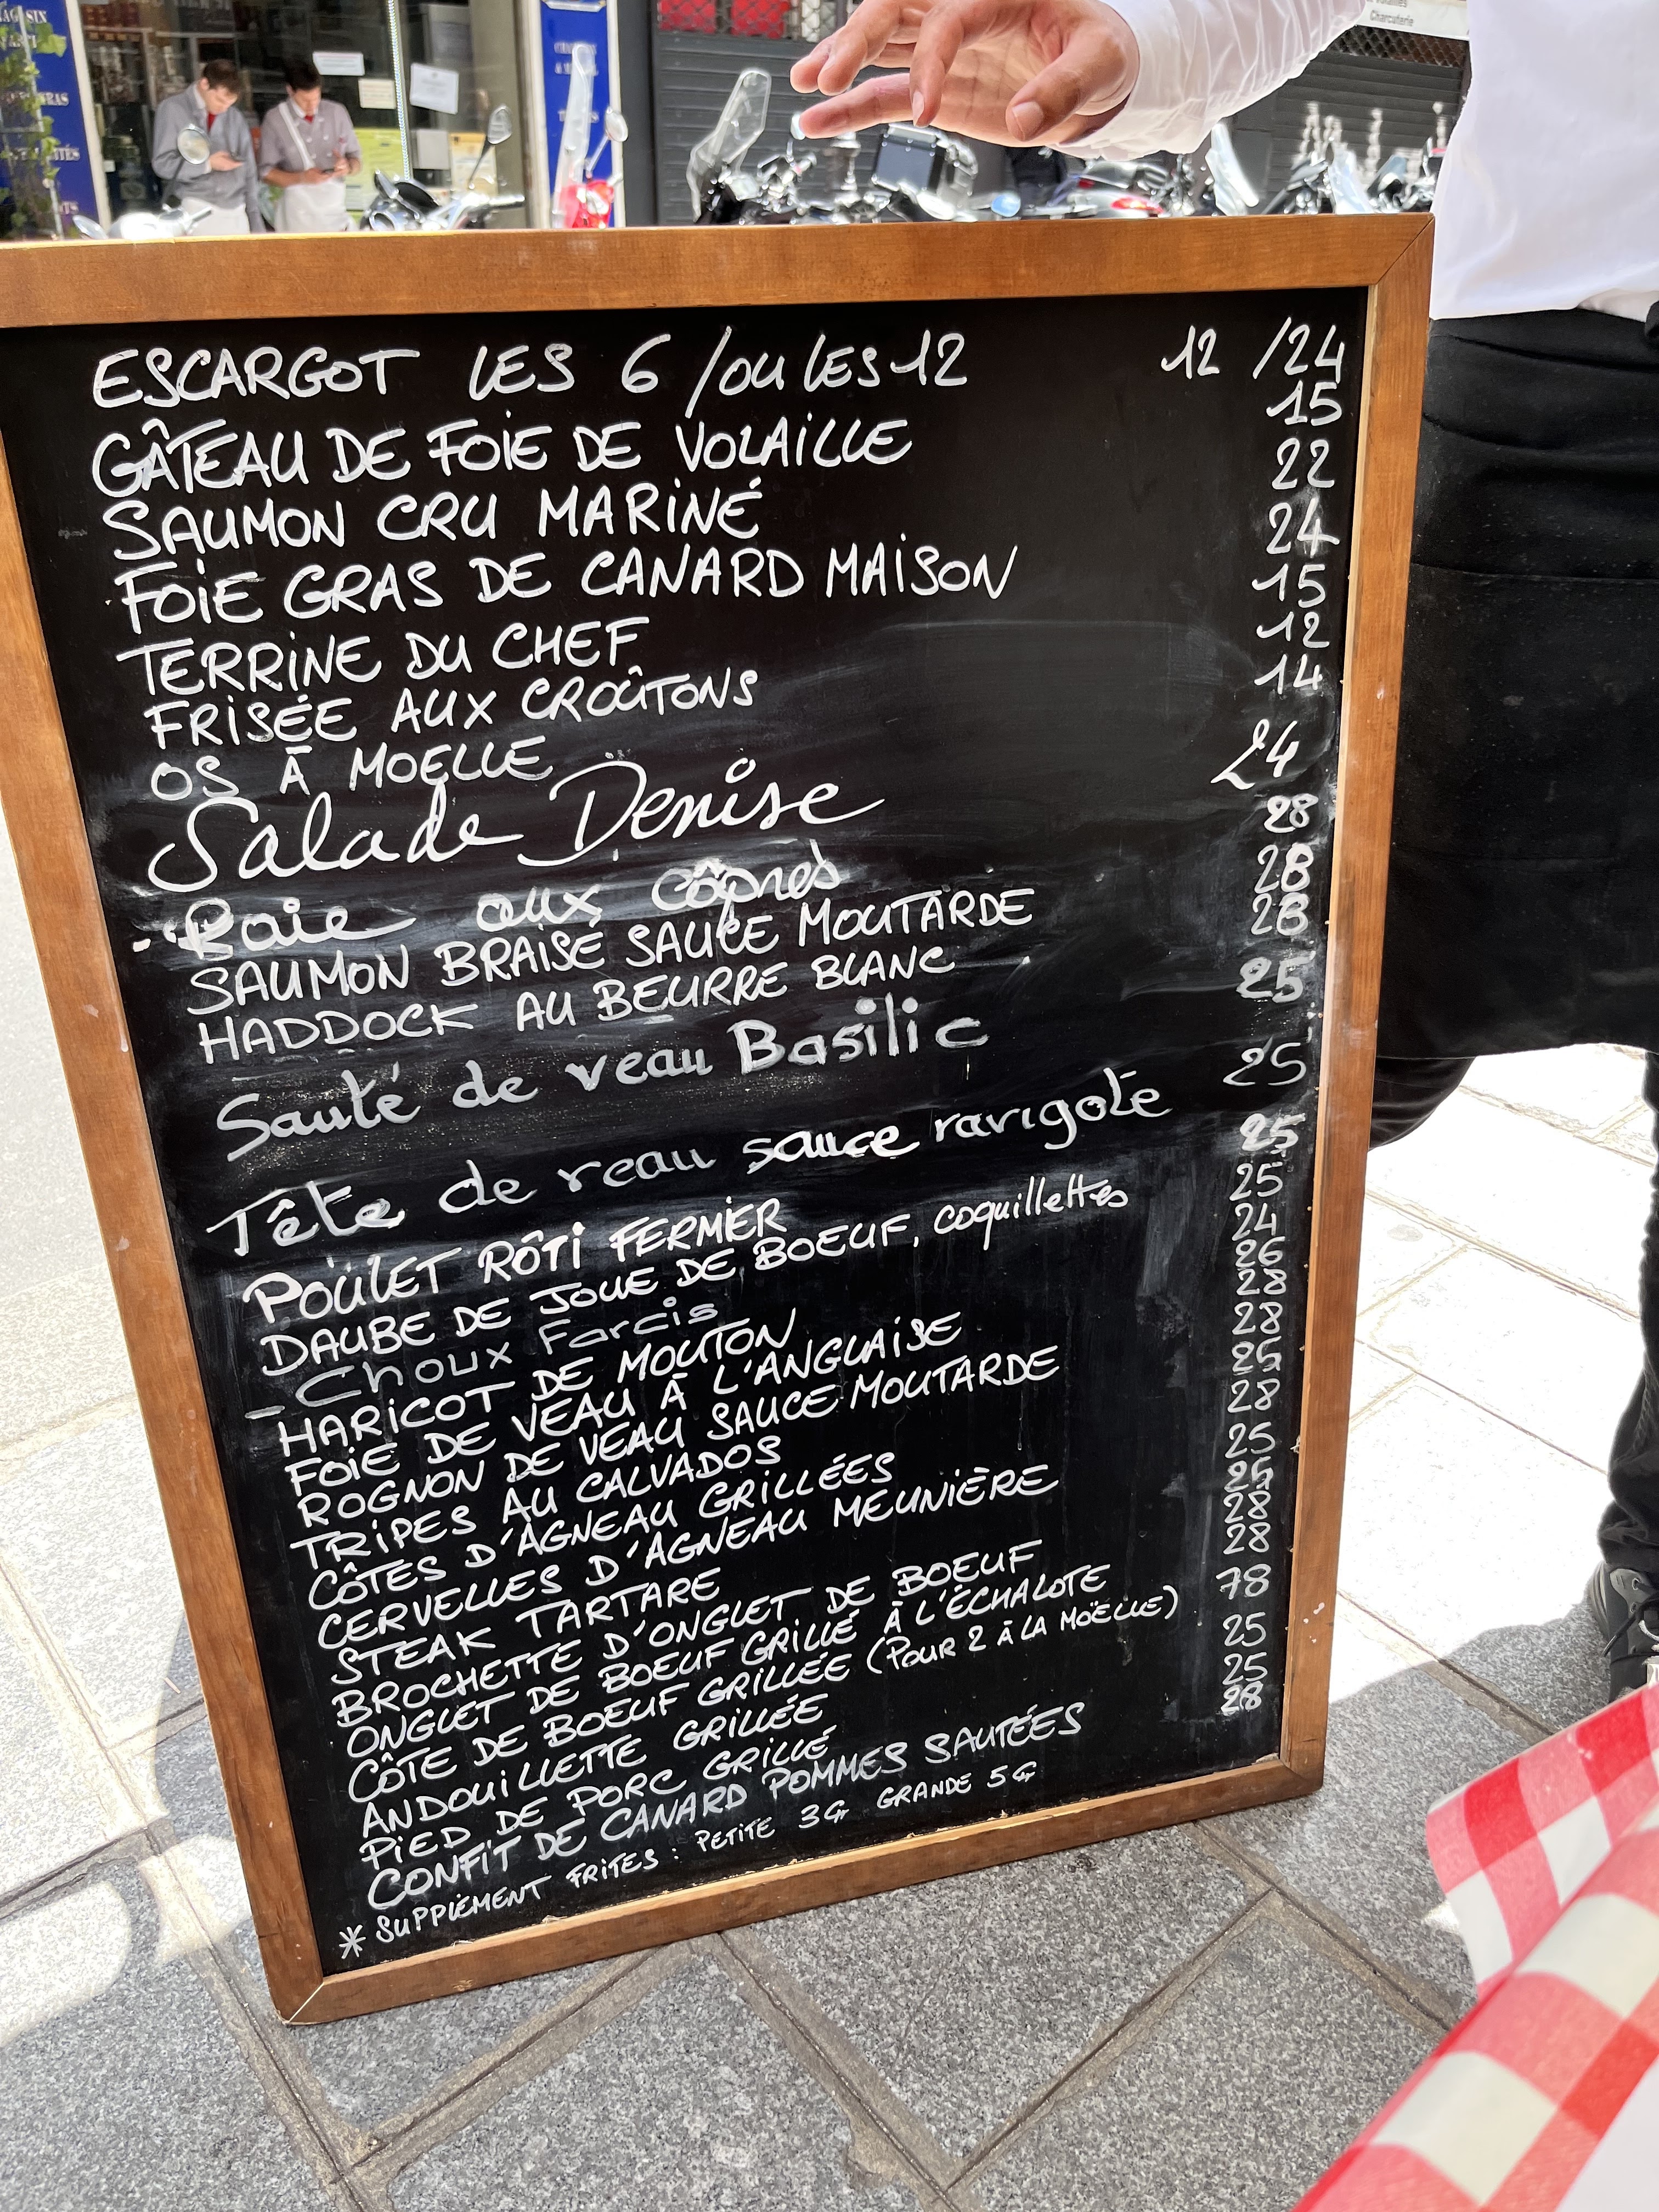 MAGASIN
GRAS
Charcuterie
ESCARGOT LES 6 / OU LES 12 12 / 24
GÂTEAU DE FOIE DE VOLAILLE 15
SAUMON CRU MARINÉ 22
FOIE GRAS DE CANARD MAISON 24
TERRINE DU CHEF 15
FRISÉE AUX CROÛTONS 12
OS À MOELLE 14
Salade Denise 24
Raie aux câpres 28
SAUMON BRAISÉ SAUCE MOUTARDE 28
HADDOCK AU BEURRE BLANC 28
Sauté de veau Basilic 25
Tête de veau sauce ravigote 25
POULET RÔTI FERMIER 25
DAUBE DE JOUE DE BOEUF, coquillettes 25
- Choux Farcis 24
HARICOT DE MOUTON 26
FOIE DE VEAU À L'ANGLAISE 28
ROGNON DE VEAU SAUCE MOUTARDE 28
TRIPES AU CALVADOS 25
CÔTES D'AGNEAU GRILLÉES 28
CERVELLES D'AGNEAU MEUNIÈRE 25
STEAK TARTARE 25
BROCHETTE D'ONGLET DE BOEUF 28
ONGLET DE BOEUF GRILLÉ À L'ÉCHALOTE 28
CÔTE DE BOEUF GRILLÉE (POUR 2 À LA MOËLLE) 78
ANDOUILLETTE GRILLÉE 25
PIED DE PORC GRILLÉ 25
CONFIT DE CANARD POMMES SAUTÉES 28
* SUPPLÉMENT FRITES : PETITE 3€ GRANDE 5€